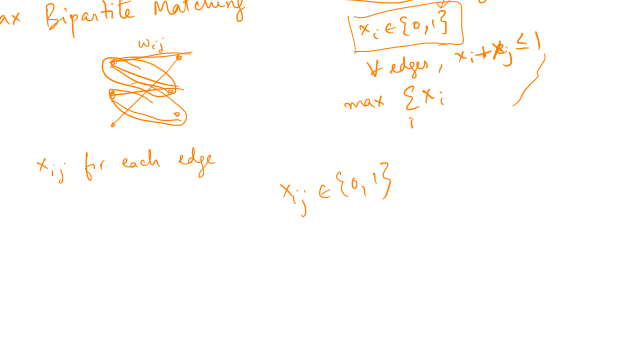 Bipartite Matching
w_ij
x_ij for each edge
x_i ∈ {0,1}
∀ edges, x_i + x_j ≤ 1
max Σ_i x_i
x_ij ∈ {0,1}